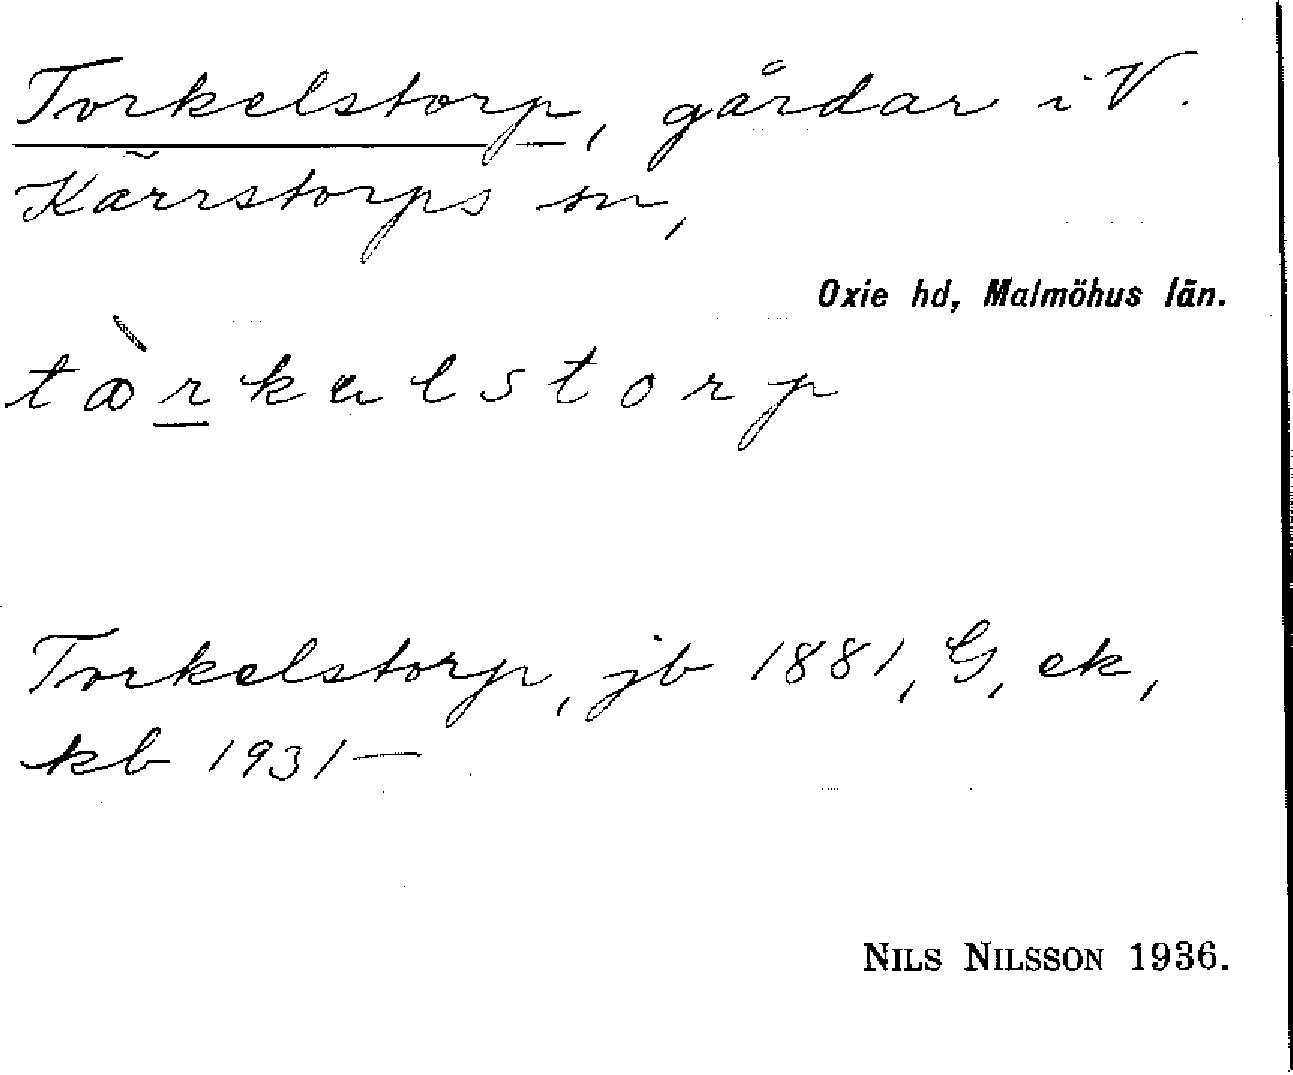 Torkelstorp, gårdar i V.
Kärrstorps sn,
Oxie hd, Malmöhus län.
Torkelstorp, jb 1881, G, ek,
kb 1931—
NILS NILSSON 1936.